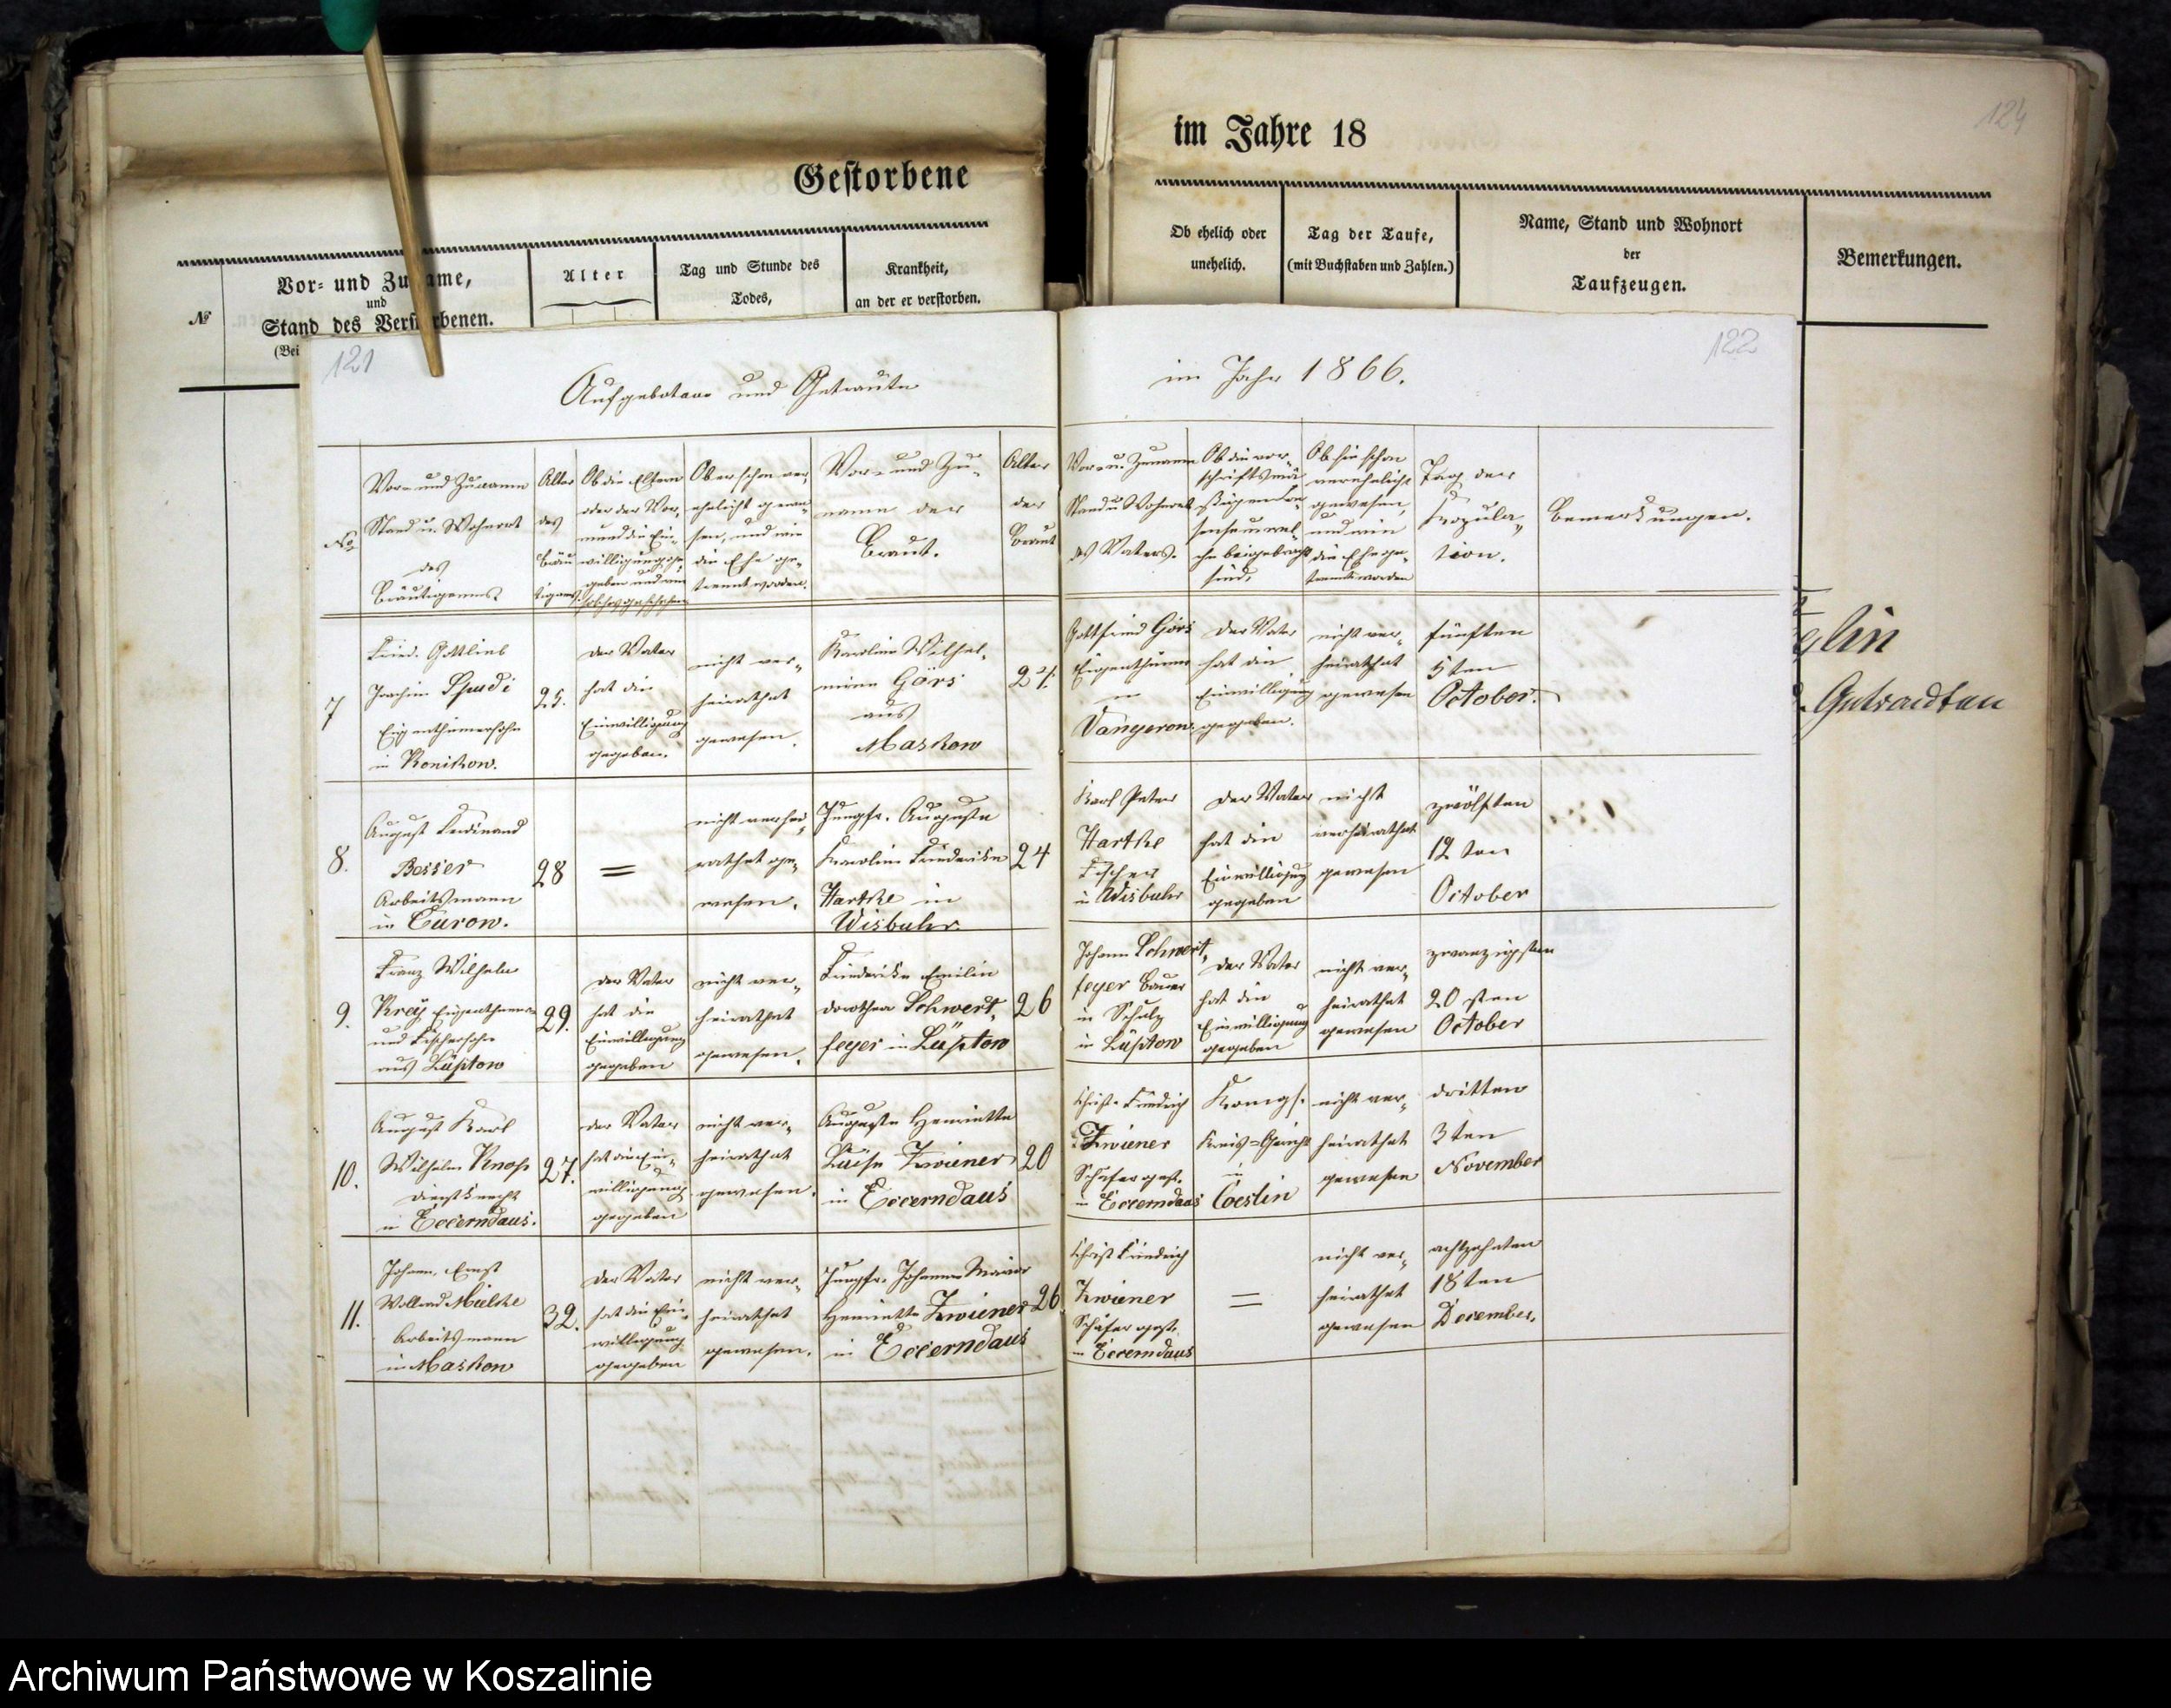 Gestorbene
im Jahre 18
124
№
Vor- und Zuname,
und
Stand des Verstorbenen.
(Bei
Alter
Tag und Stunde des
Todes,
Krankheit,
an der er verstorben.
Ob ehelich oder
unehelich.
Tag der Taufe,
(mit Buchstaben und Zahlen.)
Name, Stand und Wohnort
der
Taufzeugen.
Bemerkungen.
121
Aufgebotene und Getraute
im Jahr 1866.
122
No
Vor- und Zuname
Stand u. Wohnort
des
Bräutigams.
Alter
des
Bräu
tigams.
Ob die Eltern
oder der Vor-
mund die Ein-
willigung ge-
geben und wie
solches geschehen
Ob er schon ver-
ehelicht gewe-
sen, und wie
die Ehe ge-
trennt worden.
Vor- und Zu-
name der
Braut.
Alter
der
Braut
Vor- u. Zuname
Stand u Wohnort
des Vaters.
Ob die vor-
schriftsmä-
ßigen Con-
sense u wel-
che beigebracht
sind,
Ob sie schon
verehelicht
gewesen
und wie
die Ehe ge-
trennt worden
Tag der
Kopula-
tion.
Bemerkungen.
7
Fried. Gottlieb
Joachim Schudi
Eigenthümersohn
in Konikow.
25.
der Vater
hat die
Einwilligung
gegeben.
nicht ver-
heirathet
gewesen.
Karoline Wilhel-
mine Görs
aus
Maskow
Gottfried Görs
Eigenthümer
in
Vangerow.
der Vater
hat die
Einwilligung
gegeben.
nicht ver-
heirathet
gewesen
fünften
5ten
October.
8.
August Ferdinand
Besser
Arbeitsmann
in Curow.
28
=
nicht verhei-
rathet ge-
wesen.
Jungfr. Auguste
Karoline Friederike
Hartke in
Wisbuhr.
24
Karl Peter
Hartke
Fischer
in Wisbuhr
der Vater
hat die
Einwilligung
gegeben
nicht
verheirathet
gewesen
zwölften
12 ten
October
9.
Franz Wilhelm
Krey Eigenthümer
und Fischersohn
aus Lüptow
29.
der Vater
hat die
Einwilligung
gegeben
nicht ver-
heirathet
gewesen.
Friederike Emilie
dorothea Schwert-
feger in Lüptow
26
Johann Schwert-
feger Bauer
in Schulz
in Lüptow
der Vater
hat die
Einwilligung
gegeben
nicht ver-
heirathet
gewesen
zwanzigsten
20 sten
October
10.
August Karl
Wilhelm Knop
dienstknecht
in Eccerndaus.
27.
der Vater
hat die Ein-
willigung
gegeben
nicht ver-
heirathet
gewesen.
Auguste Henriette
Luise Zwiener
in Eccerndaus
20
Christ. Friedrich
Zwiener
Schäfer gest.
in Eccerndaus
Königl.
Kreis-Gericht
in
Coeslin
nicht ver-
heirathet
gewesen
dritten
3ten
November
11.
Johann, Ernst
Mielke
Arbeitsmann
in Maskow
32.
der Vater
hat die Ein-
willigung
gegeben
nicht ver-
heirathet
gewesen.
Jungfr. Johanne Marie
Henriette Zwiener
in Eccerndaus
26
Christ Friedrich
Zwiener
Schäfer gest.
in Eccerndaus
=
nicht ver-
heirathet
gewesen
achtzehnten
18ten
December.
Archiwum Państwowe w Koszalinie